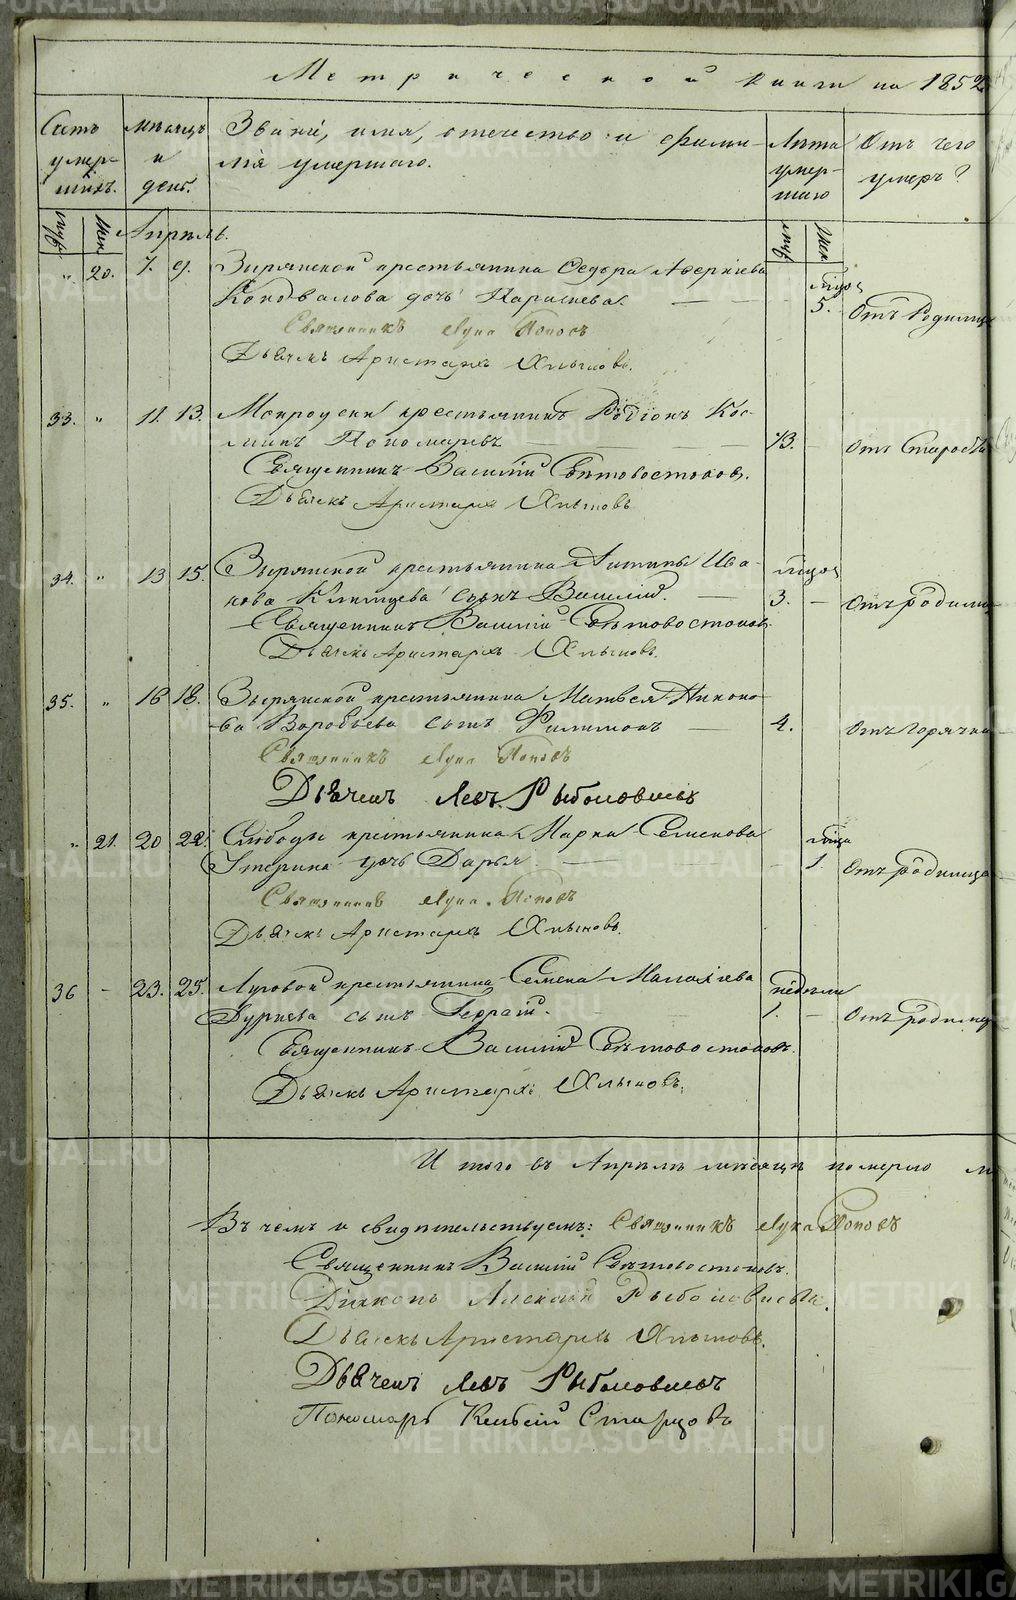 Метрической книги на 1852
Счетъ умер-шихъ.
мѣсяцъ и день.
Званіе, имя, отечество и фами-
лія умершаго.
Лѣта умер-шаго
Отъ чего умеръ?
муж. жен.
Апрѣль.
муж. жен.
" 20. 7. 9. Зырянской крестьянина Ѳедора Аверкіева мѣсяц
Коновалова дочь Параскева. 5. Отъ Родимца
Священникъ Лука Поповъ
Дьячекъ Аристархъ Хлыновъ.
33. " 11. 13. Мокроуски крестьянинъ Родіонъ Кос-
минъ Пономаревъ 73. Отъ Старости
Священникъ Василій Свѣтовостоковъ.
Дьячекъ Аристархъ Хлыновъ
34. " 13 15. Зырянской крестьянина Антипы Ива- мѣсяц
нова Клемцева сынъ Василій. 3. Отъ родимца
Священникъ Василій Свѣтовостоковъ.
Дьячекъ Аристархъ Хлыновъ.
35. " 16 18. Зырянской крестьянина Матвея Никоно-
ва Воробьева сынъ Филимонъ 4. Отъ горячки
Священникъ Лука Поповъ
Дьячекъ Левъ Рыболовлевъ
" 21. 20 22. Слободы крестьянина Марка Семенова мѣсяца
дочь Дарья 1. Отъ родимца
Священникъ Лука Поповъ
Дьячекъ Аристархъ Хлыновъ.
36 - 23. 25. Луговой крестьянина Семена Малахіева недѣли
сынъ 1. Отъ родимца
Священникъ Василій Свѣтовостоковъ.
Дьячекъ Аристархъ Хлыновъ.
Итого въ Апрѣлѣ мѣсяцѣ померло м
Въ чемъ и свидѣтельствуемъ: Священникъ Лука Поповъ
Священникъ Василій Свѣтовостоковъ.
Діаконъ Алексѣй Рыболовлевъ.
Дьячекъ Аристархъ Хлыновъ.
Дьячекъ Левъ Рыболовлевъ
Пономарь Старцовъ
METRIKI.GASO-URAL.RU